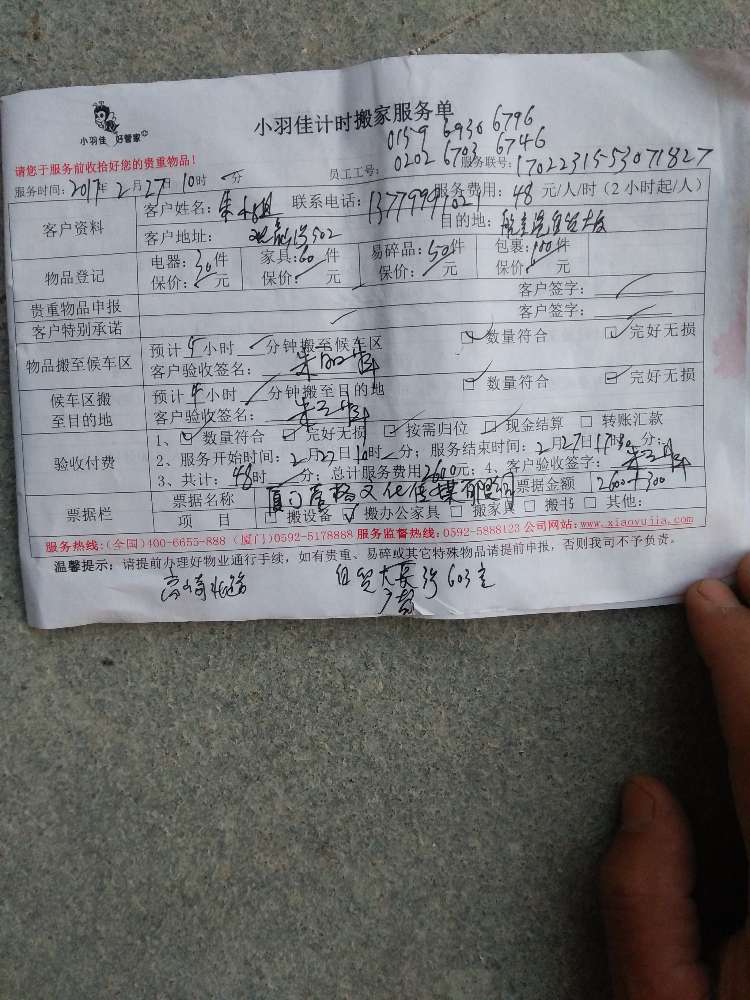 小羽佳 好管家
小羽佳计时搬家服务单
请您于服务前收拾好您的贵重物品!
0159 6930 6796
员工工号: 0202 6703 6746
服务联号: 17022315-53071827
服务时间: 2017年2月27日10时 分
客户资料
客户姓名: 朱 姐 联系电话: 服务费用: 48 元/人/时(2小时起/人)
客户地址: 502 目的地: 航空港 大厦
物品登记
电器: 30件 家具: 60件 易碎品: 50件 包裹: 100件
保价: 元 保价: 元 保价: 元 保价: 元
贵重物品申报 客户签字:
客户特别承诺 客户签字:
物品搬至候车区
预计4小时 分钟搬至候车区 ☑ 数量符合 ☑ 完好无损
客户验收签名:
候车区搬至目的地
预计4小时 分钟搬至目的地 ☑ 数量符合 ☑ 完好无损
客户验收签名:
验收付费
1、☑ 数量符合 ☑ 完好无损 ☑ 按需归位 ☑ 现金结算 □ 转账汇款
2、服务开始时间: 2月27日10时 分; 服务结束时间: 2月27日17时30分;
3、共计: 48时 分; 总计服务费用2600元; 4、客户验收签字:
票据栏
票据名称 厦门 文化传媒有限公司 票据金额 2600+300
项 目 □ 搬设备 ☑ 搬办公家具 □ 搬家具 □ 搬书 □ 其他:
服务热线:(全国)400-6655-888 (厦门)0592-5178888 服务监督热线:0592-5888123 公司网站:www.xiaoyujia.com
温馨提示: 请提前办理好物业通行手续, 如有贵重、易碎或其它特殊物品请提前申报, 否则我司不予负责。
高崎 大厦 603室